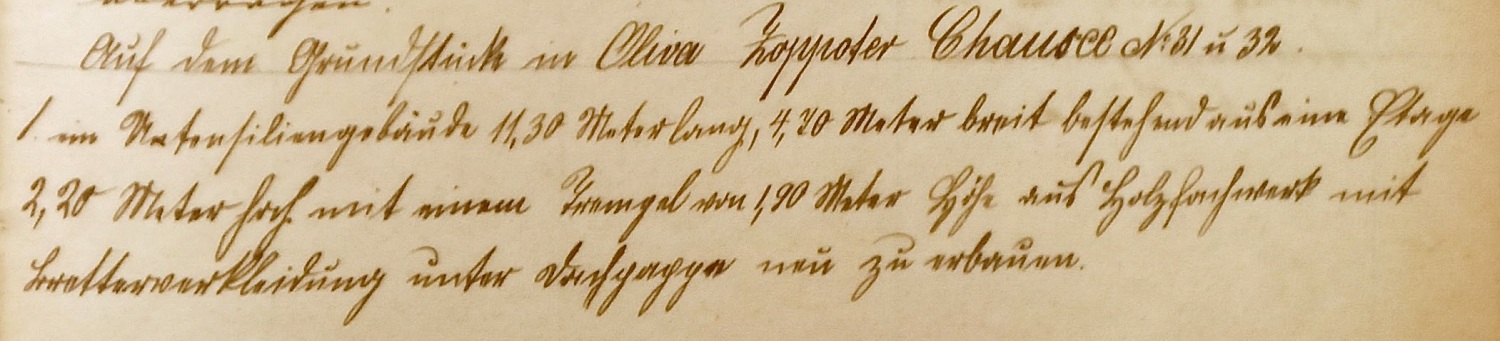 Auf dem Grundstück in Oliva Zoppoter Chausee No 31 u 32.
1. ein Utensiliengebäude 11,30 Meter lang, 4,70 Meter breit bestehend aus eine Etage
2,20 Meter hoch mit einem Trempel von 1,90 Meter Höhe aus Holzfachwerk mit
Bretterverkleidung unter Dachpappe neu zu erbauen.